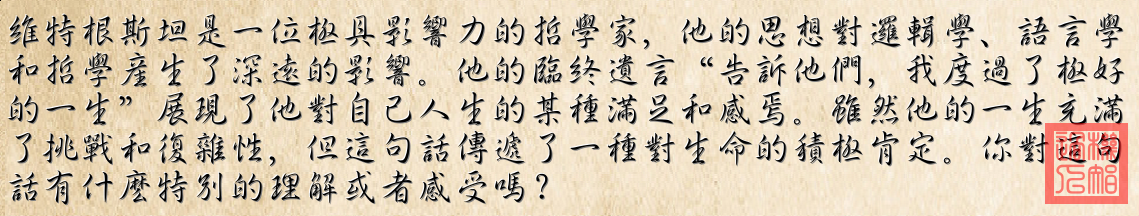 維特根斯坦是一位極具影響力的哲學家，他的思想對邏輯學、語言學
和哲學産生了深遠的影響。他的臨終遺言“告訴他們，我度過了極好
的一生”展現了他對自己人生的某種滿足和感焉。雖然他的一生充滿
了挑戰和復雜性，但這句話傳遞了一種對生命的積極肯定。你對這句
話有什麽特別的理解或者感受嗎？